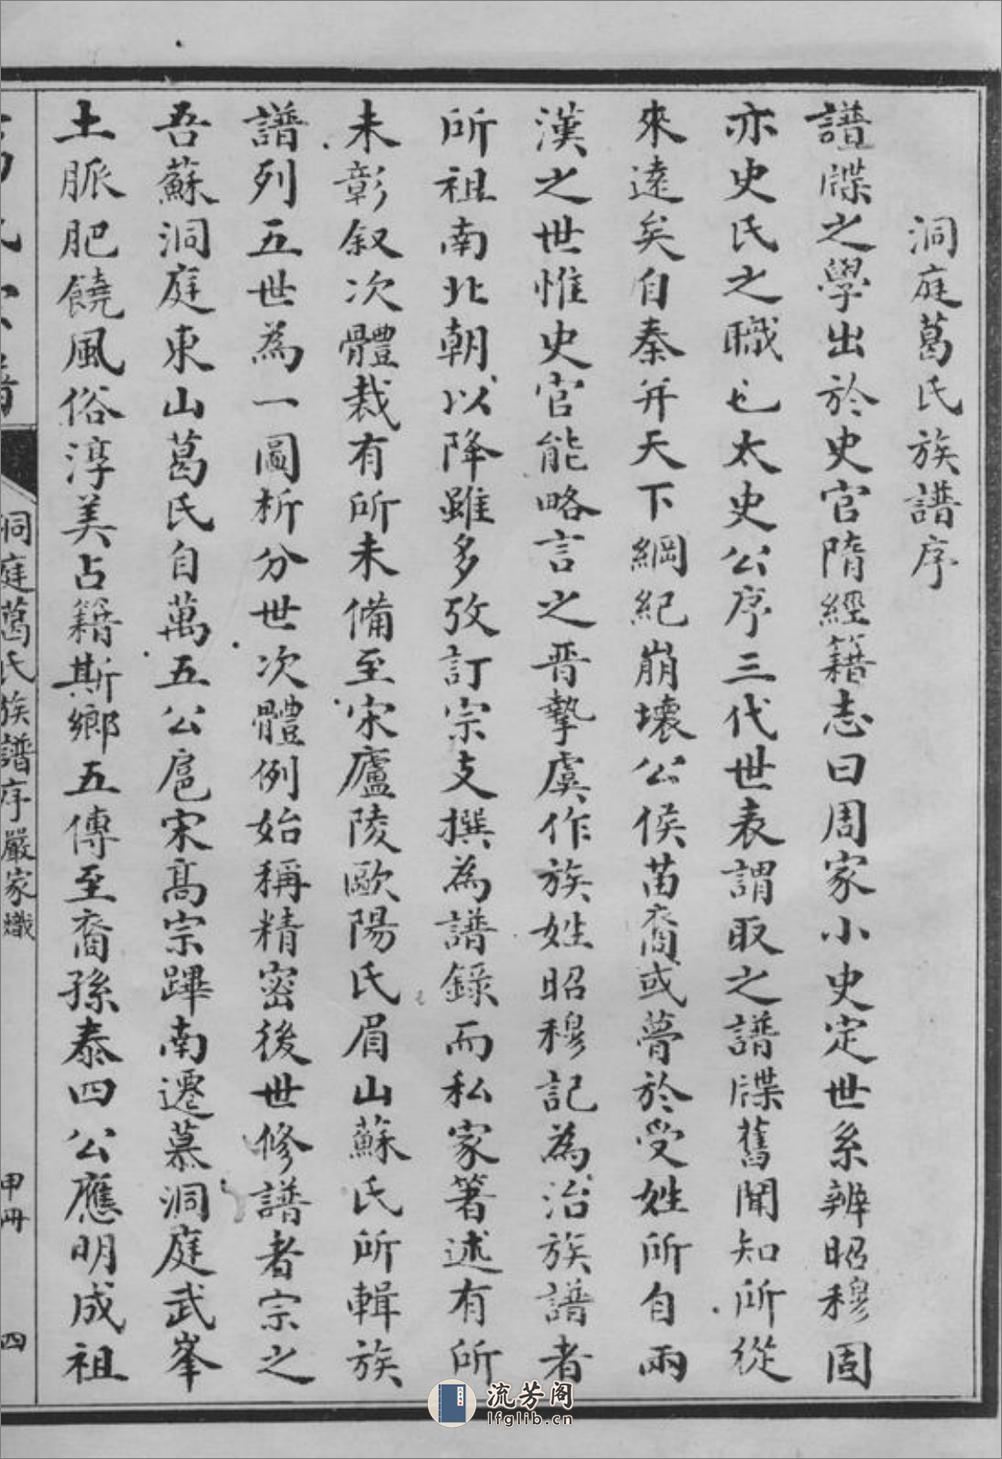 洞庭葛氏族譜序
譜牒之學出於史官隋經籍志曰周家小史定世系辨昭穆固
亦史氏之職也太史公序三代世表謂取之譜牒舊聞知所從
來遠矣自秦并天下綱紀崩壞公侯苗裔或瞢於受姓所自兩
漢之世惟史官能略言之晋摯虞作族姓昭穆記為治族譜者
所祖南北朝以降雖多攷訂宗支撰為譜錄而私家著述有所
未彰叙次體裁有所未備至宋廬陵歐陽氏眉山蘇氏所輯族
譜列五世為一圖析分世次體例始稱精密後世修譜者宗之
吾蘇洞庭東山葛氏自萬五公扈宋高宗蹕南遷慕洞庭武峯
土脈肥饒風俗淳美占籍斯鄉五傳至裔孫泰四公應明成祖
洞庭葛氏族譜序 嚴家熾
甲冊 四
流芳阁
lfglib.cn